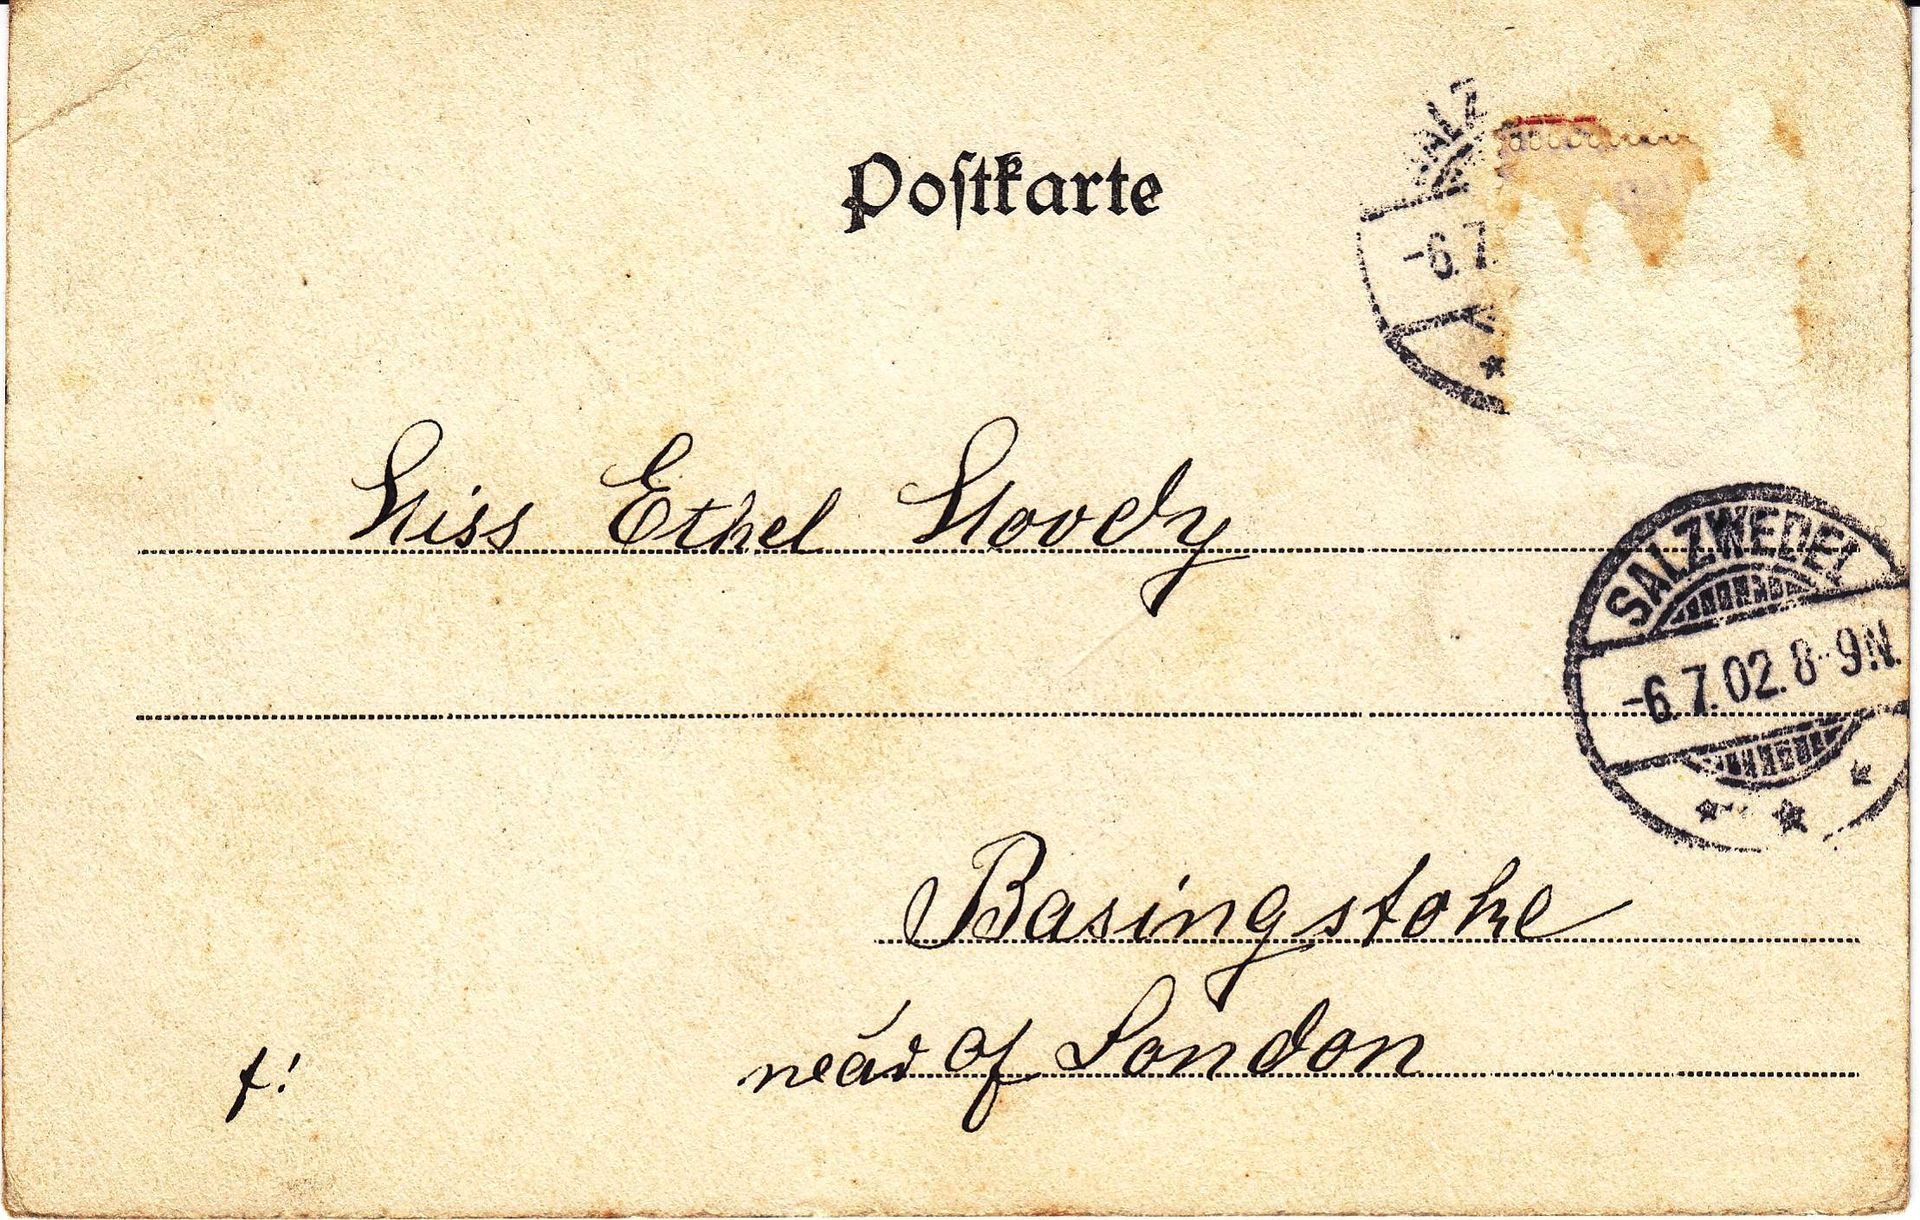 Postkarte
SALZ
-6.7.
Miss Ethel Moody
SALZWEDEL
-6.7.02.8-9N.
Basingstoke
neár of London
f!